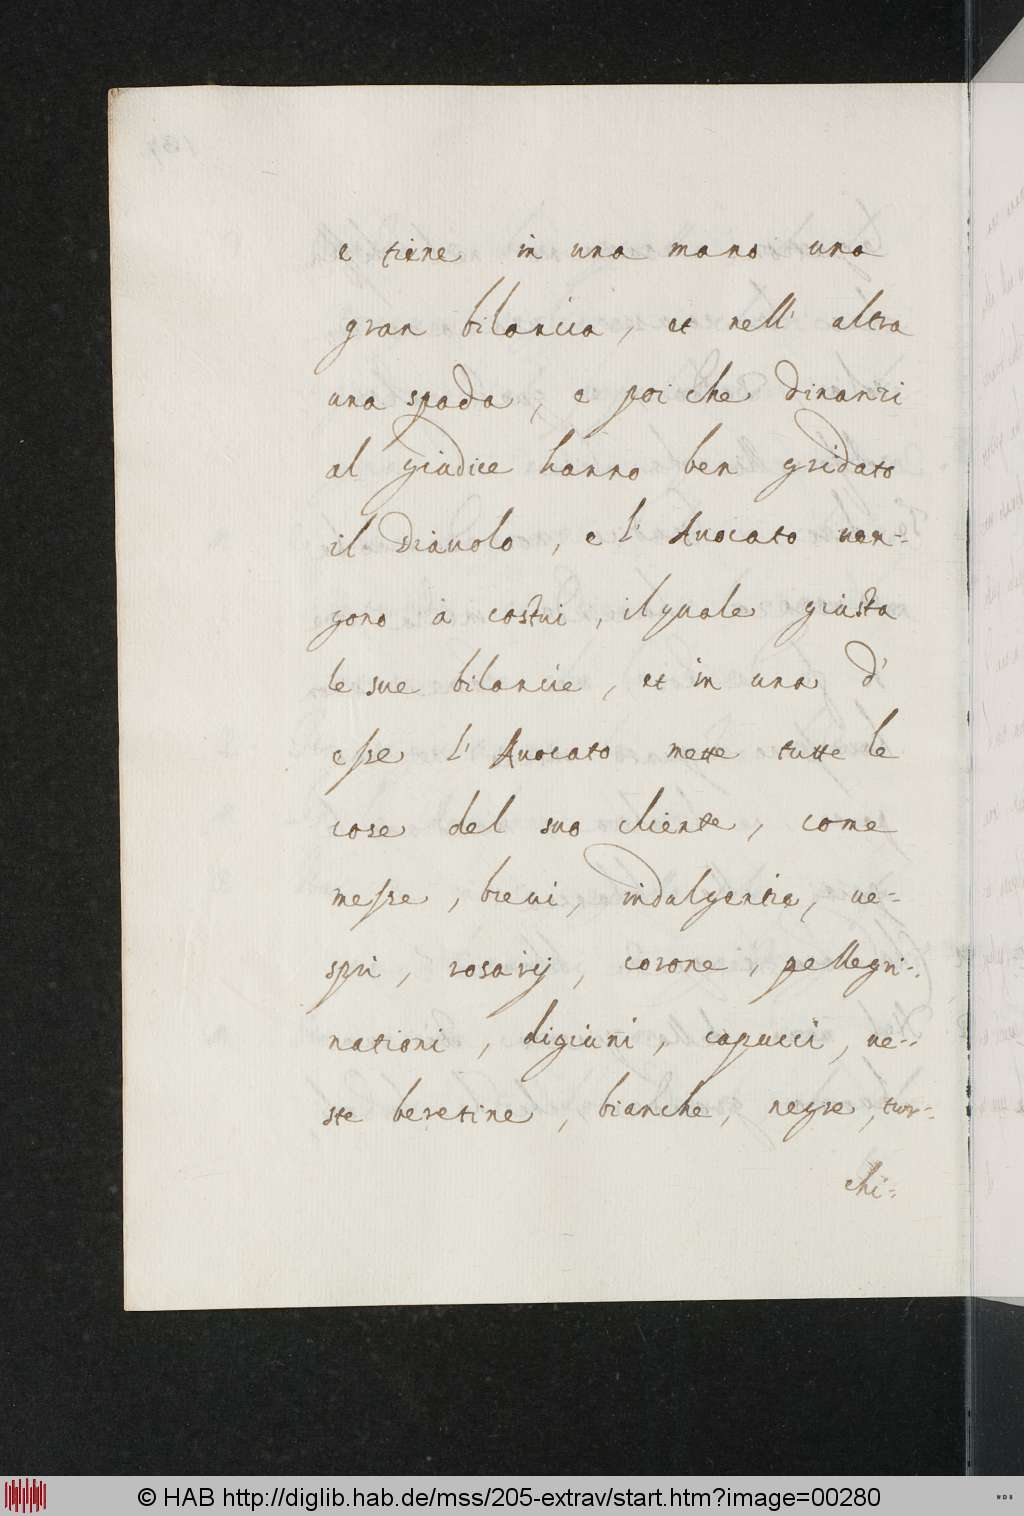 e tiene in una mano una
gran bilancia, et nell' altra
una spada, e poi che dinanzi
al giudice hanno ben gridato
il Diauolo, e l' Auocato uen-
gono à costui, ilquale giusta
le sue bilancie, et in una d'
esse l' Auocato mette tutte le
cose del suo cliente, come
messe, breui, indulgentie, ue-
spri, rosarij, corone, pellegri-
nationi, digiuni, capucci, ue-
ste beretine, bianche, negre, tur-
chi-
© HAB http://diglib.hab.de/mss/205-extrav/start.htm?image=00280